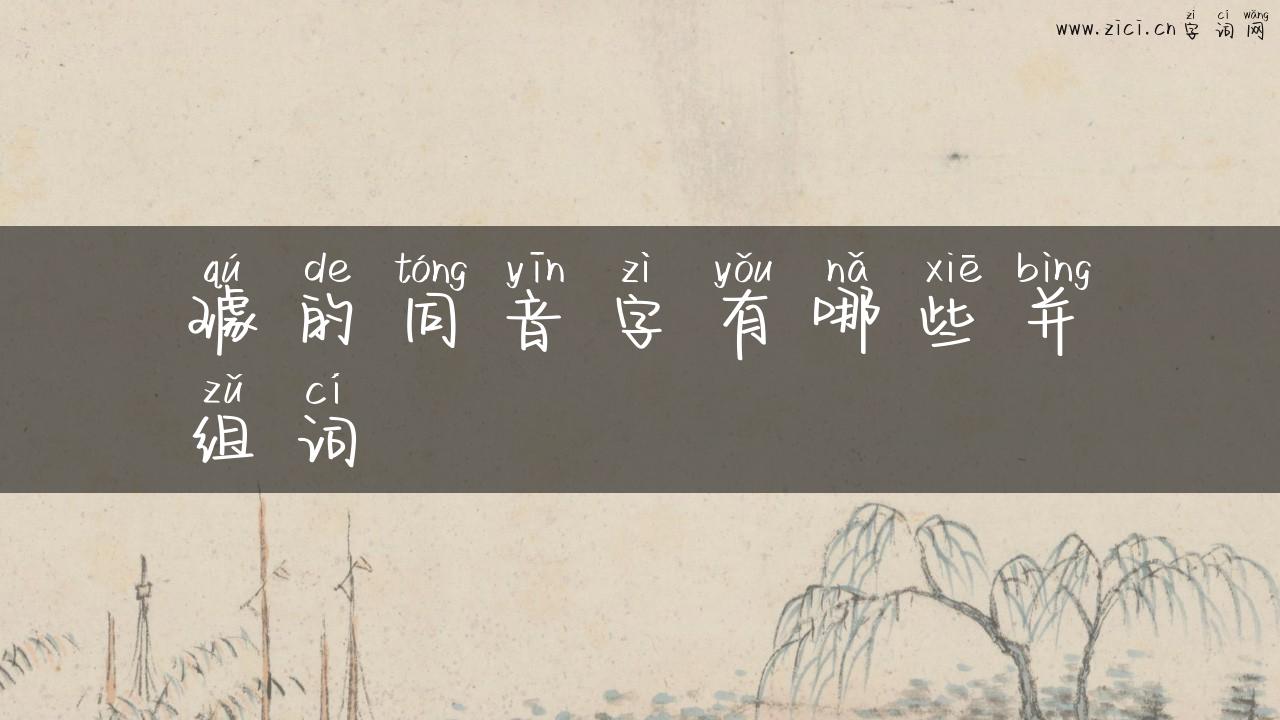 zì cí wǎng
www.zici.cn 字 词 网
qú de tóng yīn zì yǒu nǎ xiē bìng
璩 的 同 音 字 有 哪 些 并
zǔ cí
组 词